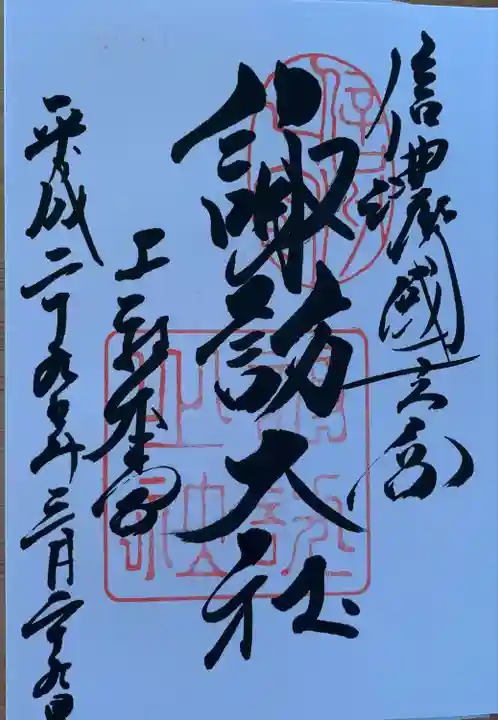 信濃國一宮
諏訪大社
上社本宮
平成二十九年三月二十九日